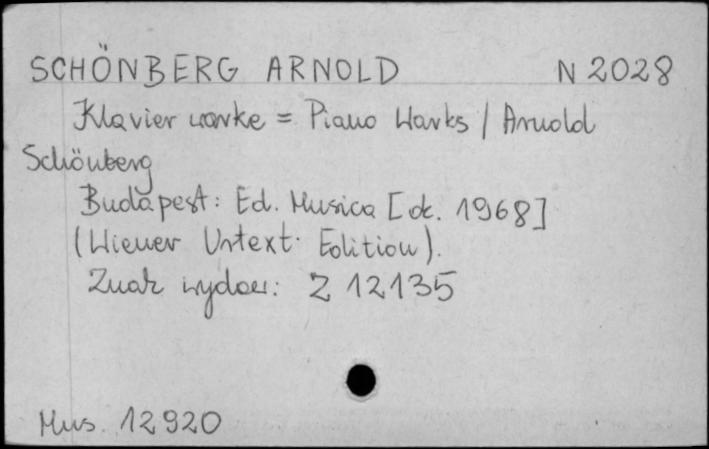 SCHÖNBERG ARNOLD N 2028
Klavier warke = Piano Warks / Arnold
Schönberg
Budapest: Ed. Musica [ok. 1968]
(Wiener Urtext Edition).
Znak wydaw.: Z 12135
Mus. 12920